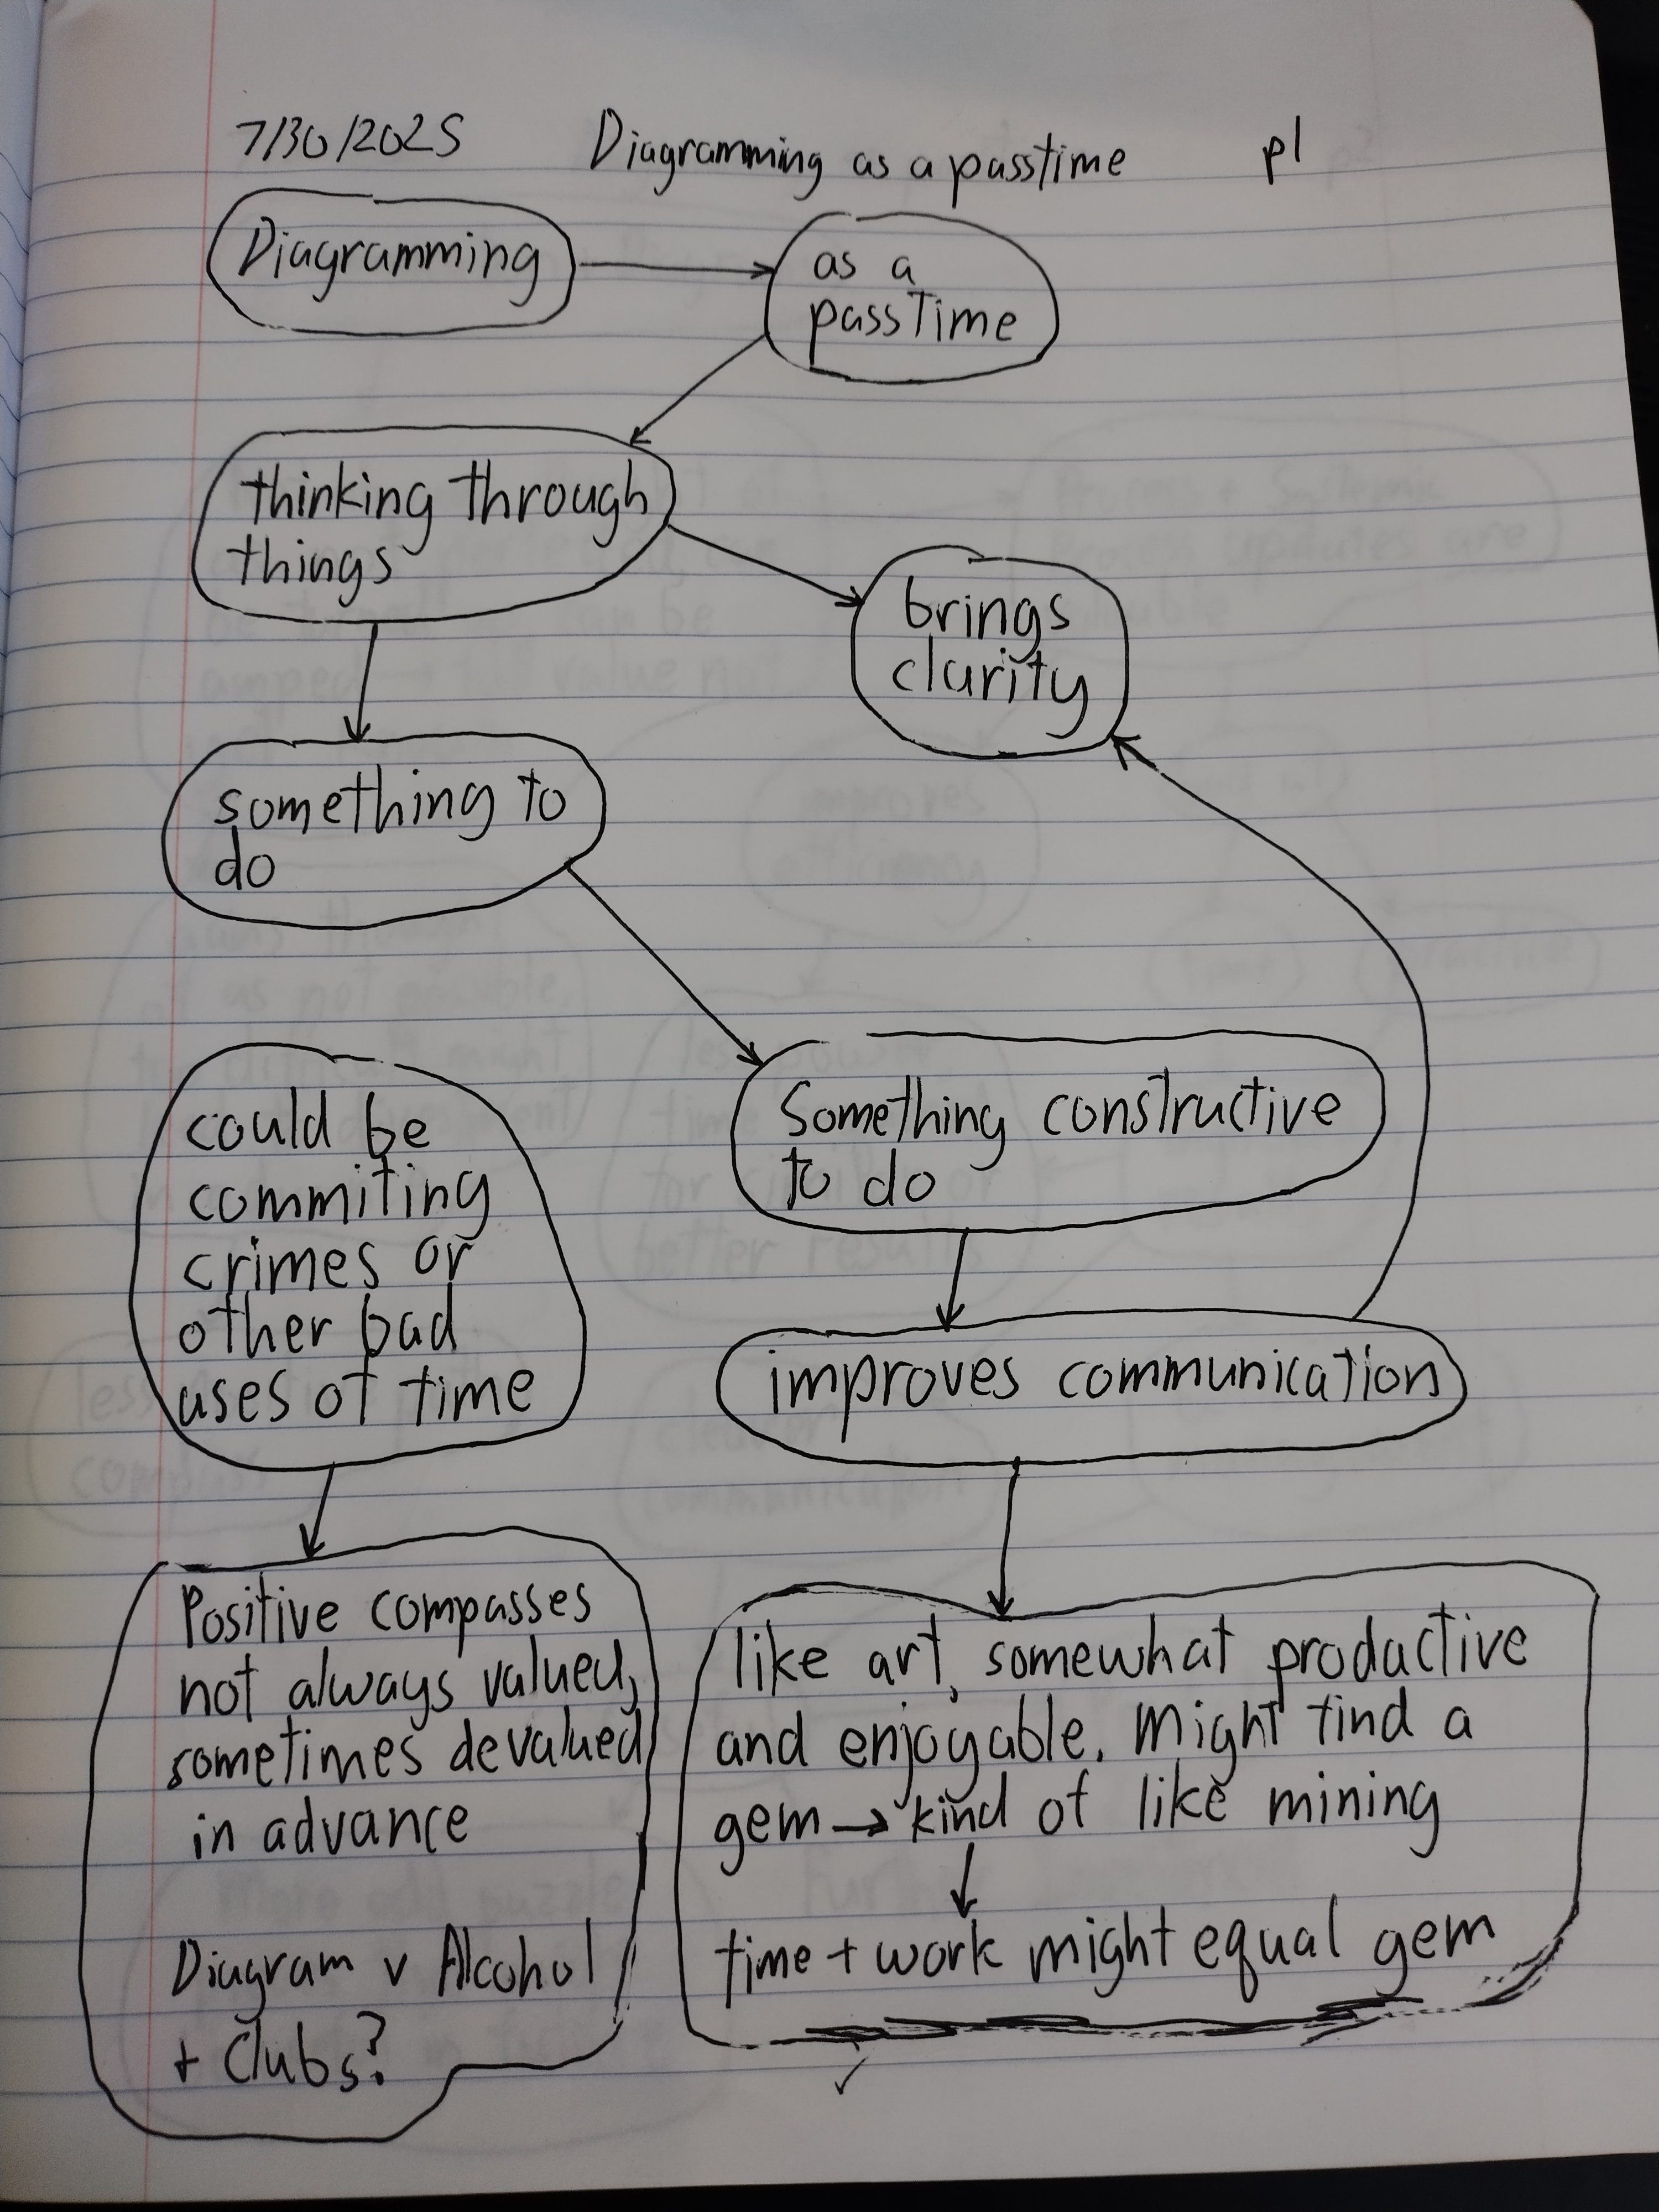 7/30/2025 Diagramming as a passtime p1
Diagramming
as a
passtime
thinking through
things
brings
clarity
something to
do
Something constructive
to do
could be
commiting
crimes or
other bad
uses of time
improves communication
Positive compasses
not always valued,
sometimes devalued
in advance
Diagram v Alcohol
+ Clubs?
like art, somewhat productive
and enjoyable. Might find a
gem → kind of like mining
↓
time + work might equal gem
✓